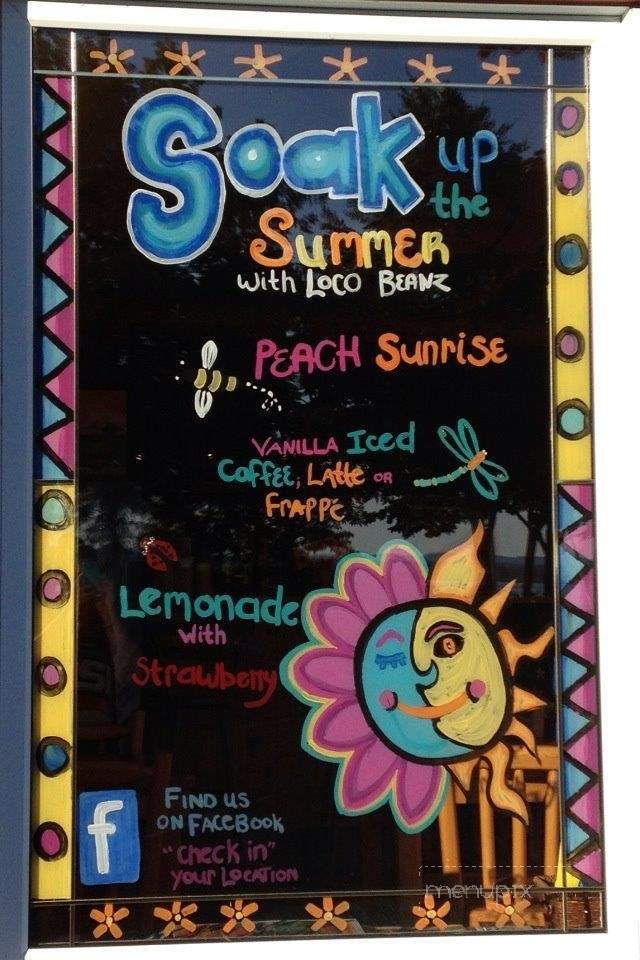 Soak up
the
Summer
with Loco Beanz
Peach Sunrise
Vanilla Iced
Coffee, Latte or
Frappé
Lemonade
with
Strawberry
f
Find us
on Facebook
"check in"
your location
menupix